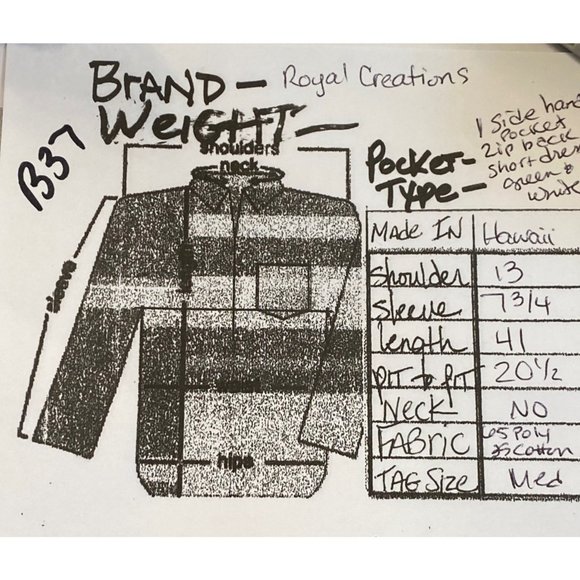 BRAND - Royal Creations
WEIGHT -
B37
shoulders
neck
sleeve
hips
POCKET-
TYPE -
1 Side hand
Pocket
Zip back
Short dress
Green &
White
MADE IN Hawaii
shoulder 13
sleeve 7 3/4
Length 41
PIT to PIT 20 1/2
Neck NO
FABRIC 65 Poly
35 Cotton
TAG Size Med